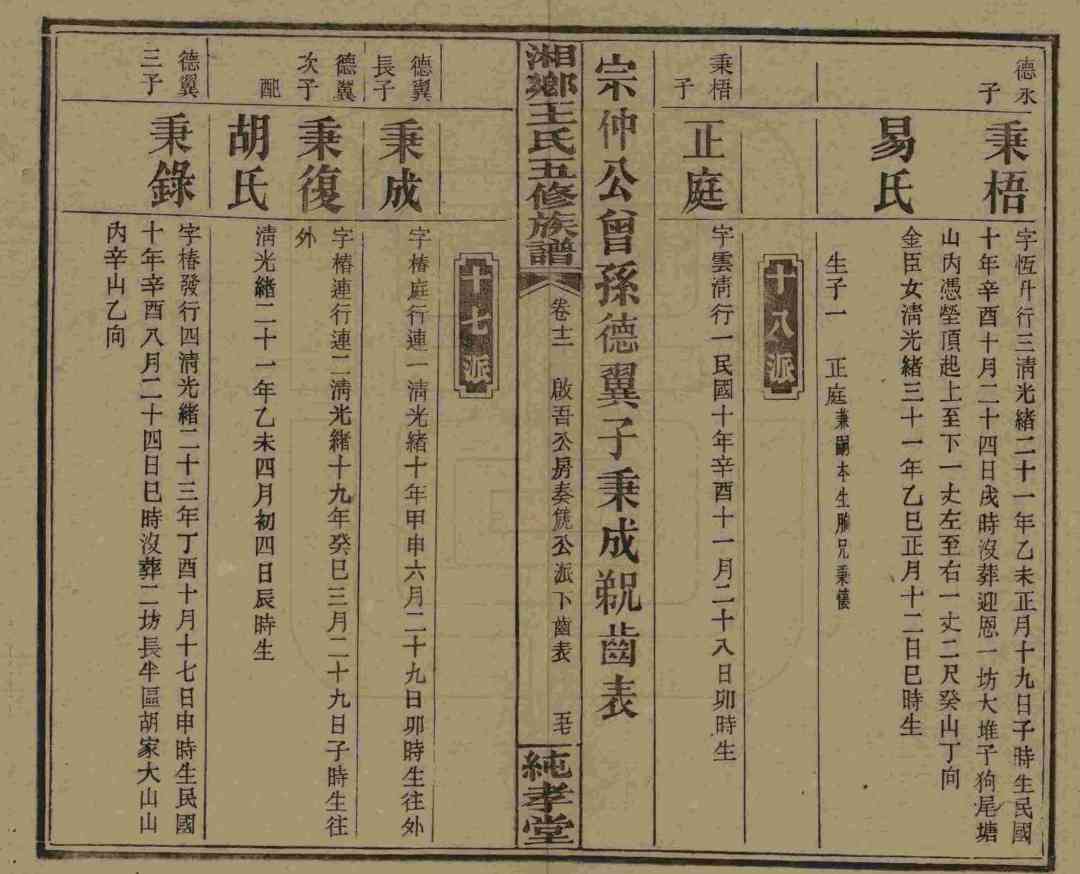 德永
子
秉梧
字恆升行三淸光緒二十一年乙未正月十九日子時生民國
十年辛酉十月二十四日戌時沒葬迎恩一坊大堆子狗尾塘
山丙憑塋頂起上至下一丈左至右一丈二尺癸山丁向
易氏
金臣女淸光緒三十一年乙巳正月十二日巳時生
生子一 正庭兼嗣本生胞兄秉儀
十八派
秉梧
子
正庭
字雲淸行一民國十年辛酉十一月二十八日卯時生
宗仲公曾孫德翼子秉成覜齒表
湘鄉王氏五修族譜
卷十二 啟吾公房奏篪公派下齒表
純孝堂
十七派
德翼
長子
秉成
字椿庭行連一淸光緒十年甲申六月二十九日卯時生往外
德翼
次子
秉復
字椿連行連二淸光緒十九年癸巳三月二十九日子時生往
外
配
胡氏
淸光緒二十一年乙未四月初四日辰時生
德翼
三子
秉錄
字椿發行四淸光緒二十三年丁酉十月十七日申時生民國
十年辛酉八月二十四日巳時沒葬二坊長半區胡家大山山
內辛山乙向